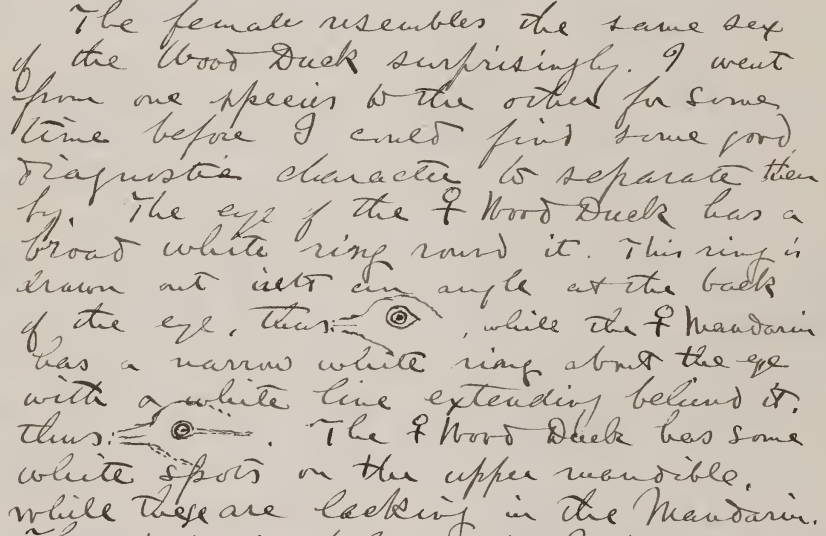 The female resembles the same sex
of the Wood Duck surprisingly. I went
from one species to the other for some
time before I could find some good
diagnostic character to separate them
by. The eye of the ♀ Wood Duck has a
broad white ring round it. This ring is
drawn out into an angle at the back
of the eye, thus: , while the ♀ Mandarin
has a narrow white ring about the eye
with a white line extending behind it,
thus: . The ♀ Wood Duck has some
white spots on the upper mandible,
while these are lacking in the Mandarin.